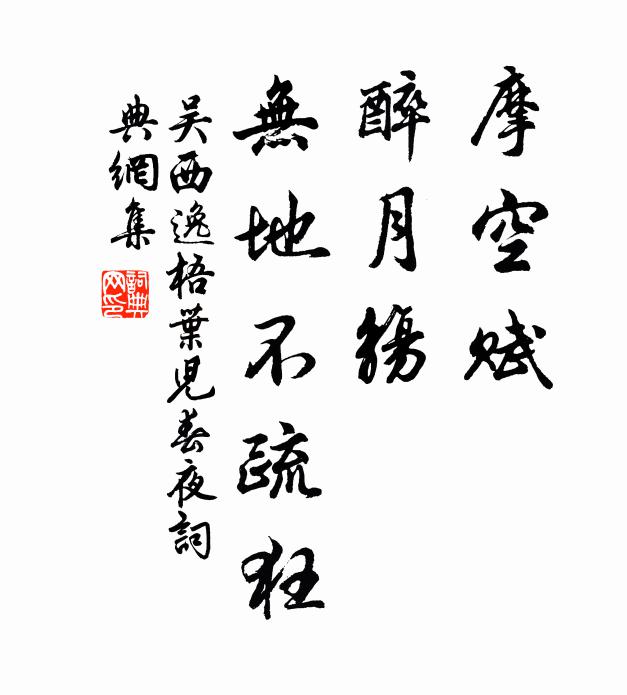 摩空賦
醉月觴
無地不疏狂
吳西逸梧葉児春夜詞
典網集
詞典網印